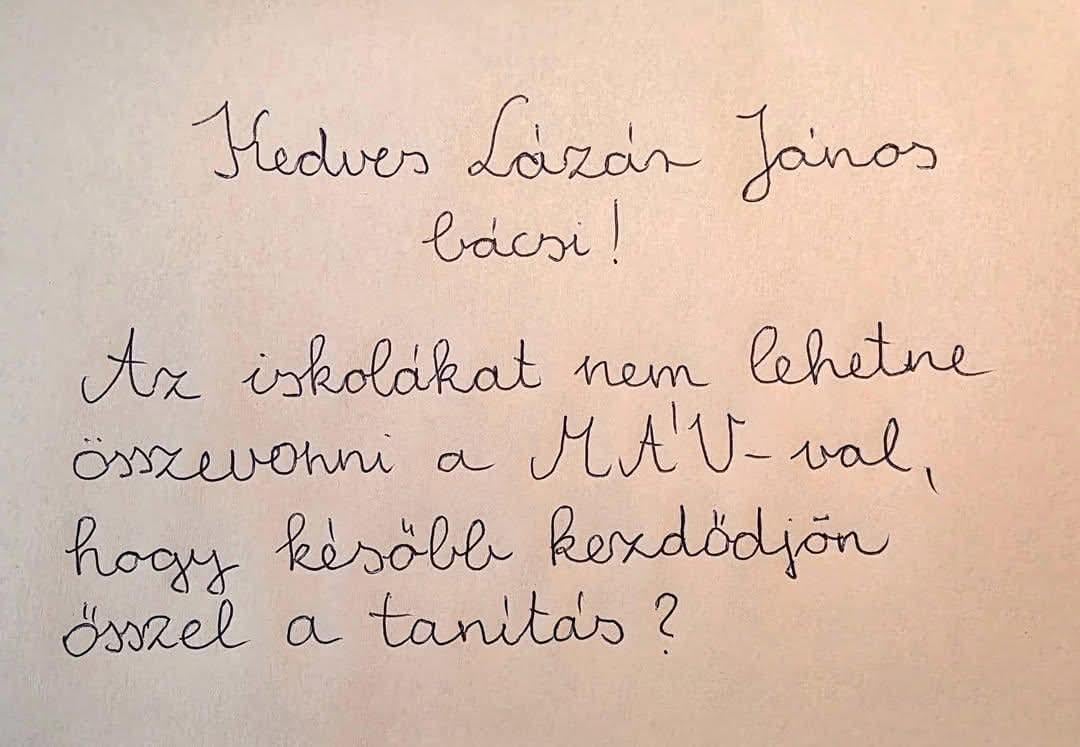 Kedves Lázár János
bácsi!
Az iskolákat nem lehetne
összevonni a MÁV-val,
hogy később kezdődjön
ősszel a tanítás?